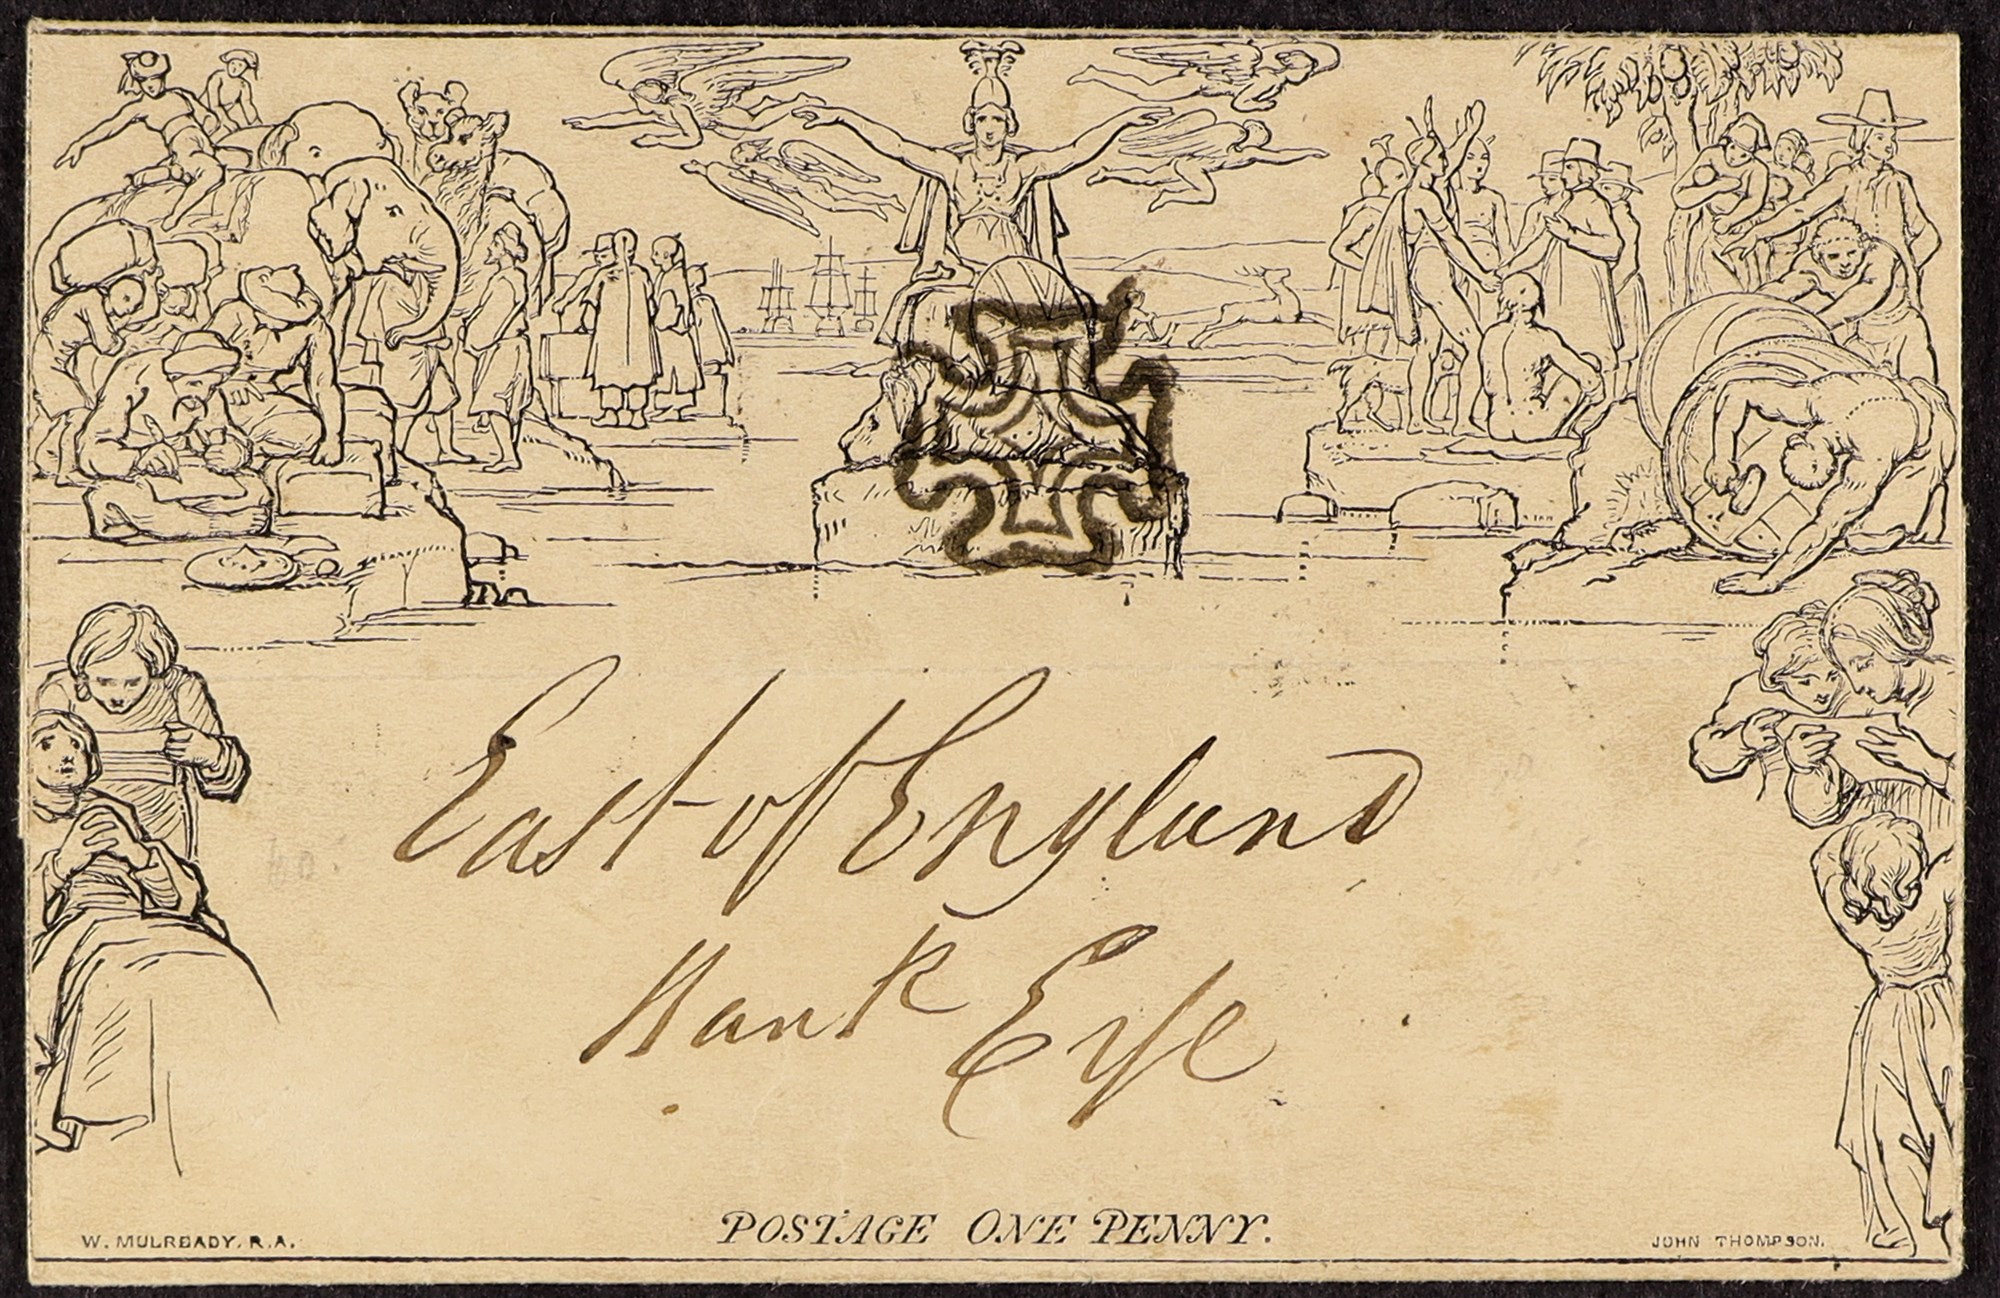 East of England
Bank Eye
POSTAGE ONE PENNY.
W. MULREADY. R.A.
JOHN THOMPSON.